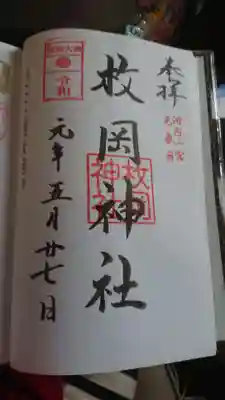 奉拝
河内一之宮
元春日
枚岡神社
枚岡
神社
令和
元年五月廿七日